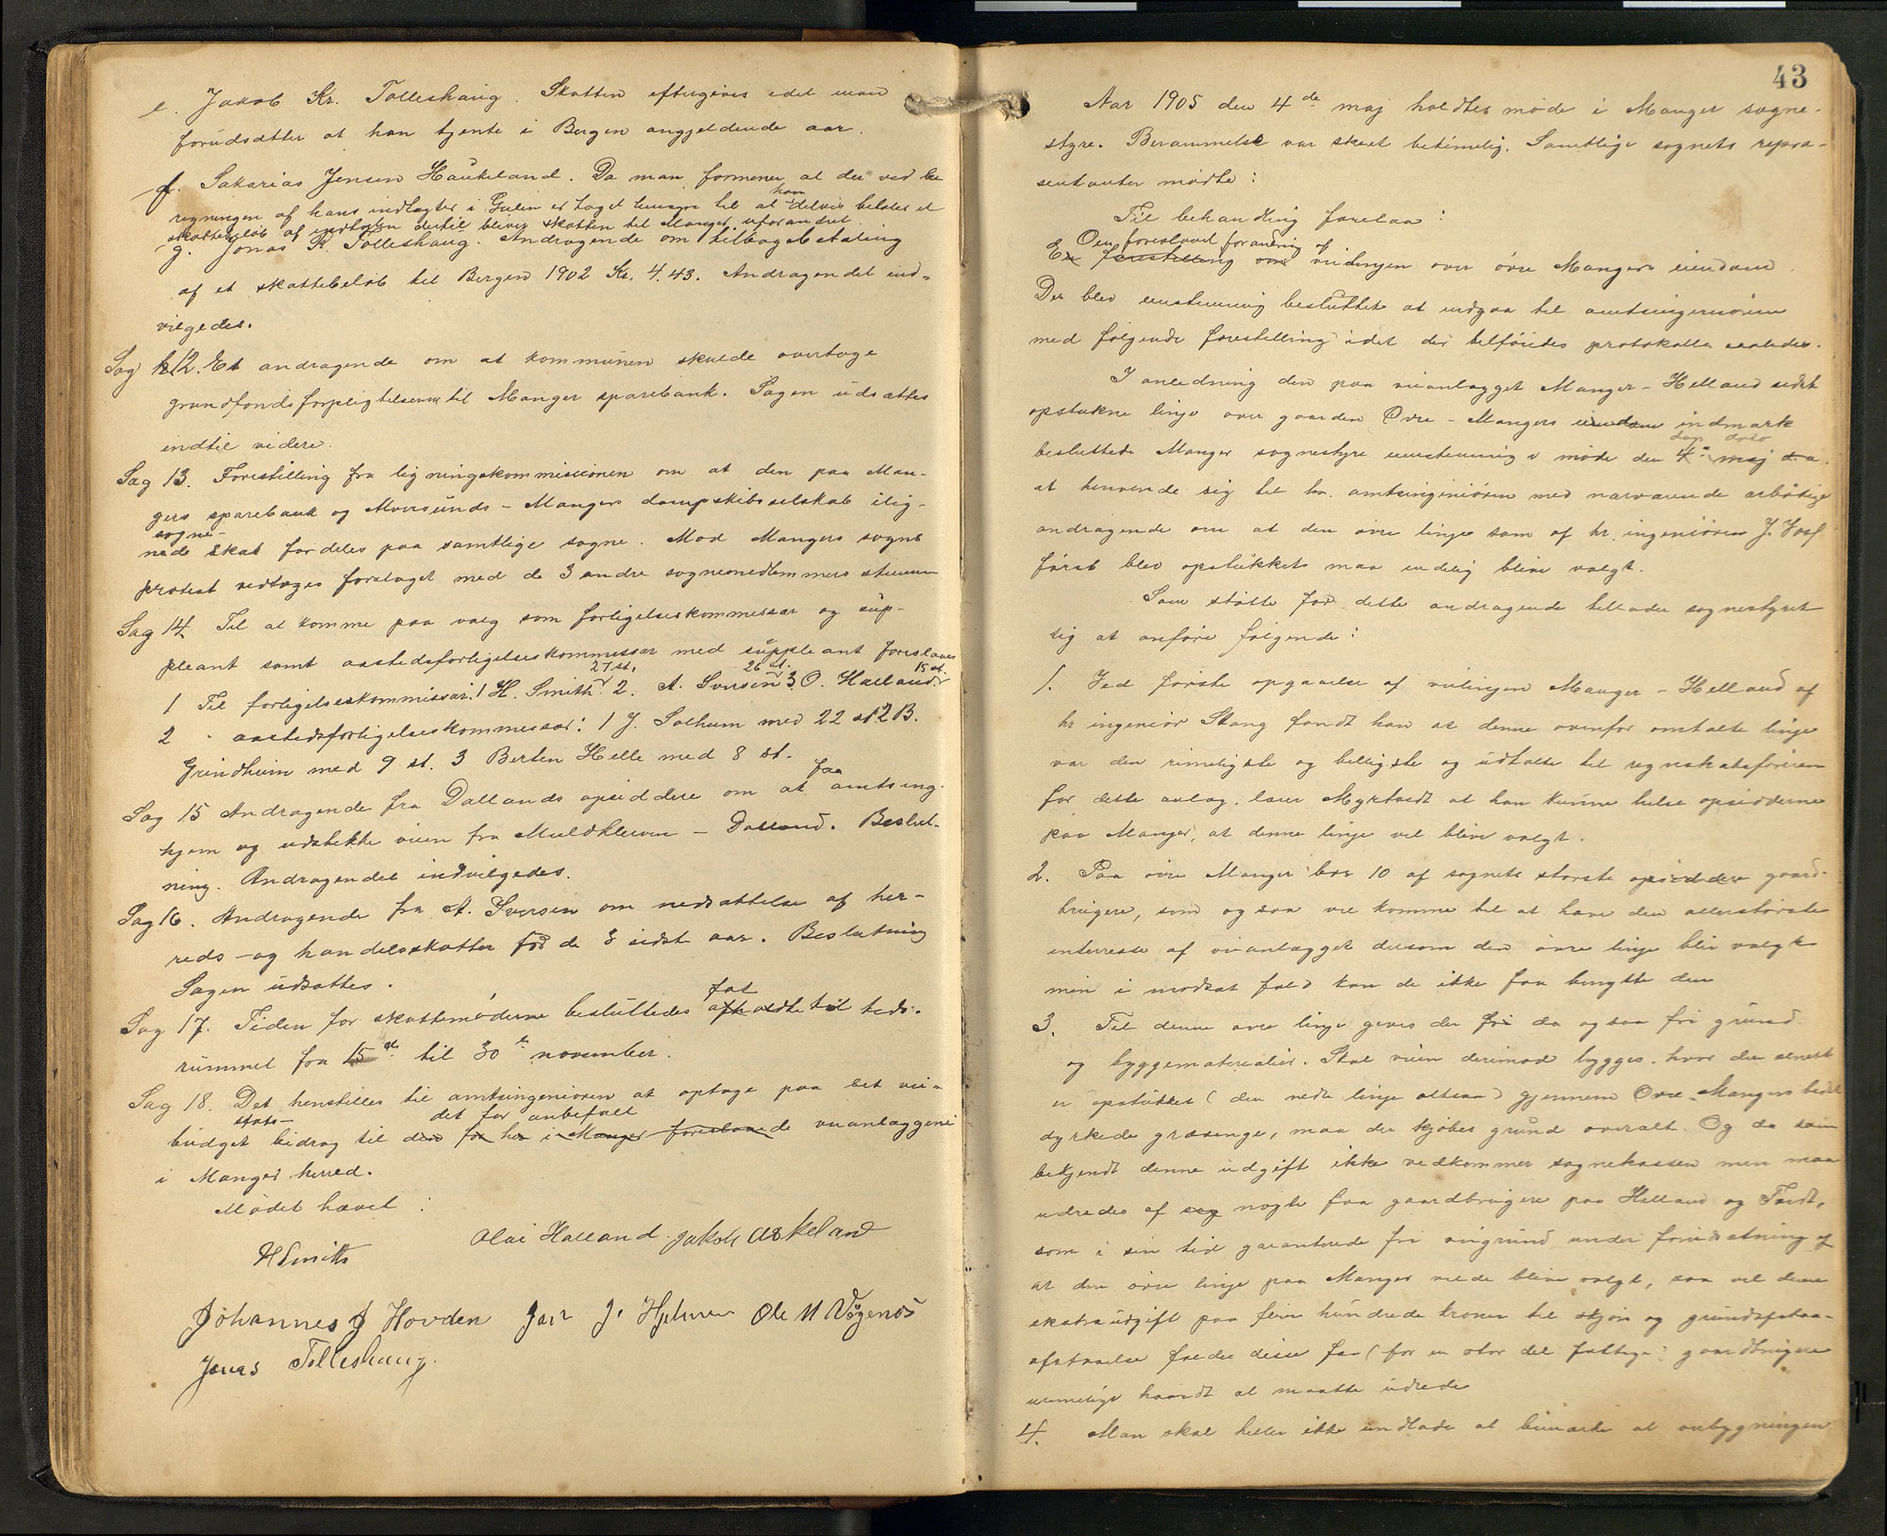 e. Jakob Kr. Tolleshaug. Skatten eftergives idet man
forudsætter at han tjente i Bergen angjeldende aar.
f. Sakarias Jensen Haukeland. Da man formener at der ved be
regningen af hans indtægter i Gulen er taget hensyn til at han delvis betaler et
skattebeløb af indtægten dertil bliver skatten til Manger uforandret.
g. Jonas K. Tolleshaug. Andragende om tilbagebetaling
af et skattebeløb til Bergen 1902 Kr. 4.43. Andragendet ind-
vilgedes.
Sag 12. Et andragende om at kommunen skulde overtage
grundfondsforpligtelserne til Manger sparebank. Sagen udsættes
indtil videre.
Sag 13. Forestilling fra ligningskommissionen om at den paa Man-
gers sparebank og Alversunds - Manger dampskibsselskab ilig-
sogne-
nede skat fordeles paa samtlige sogne. Mod Mangers sogns
protest vedtages forslaget med de 3 andre sognemedlemmers stemmer
Sag 14. Til at komme paa valg som forligelseskommissær og sup-
pleant samt aastedsforligelseskommissær med suppleant foreslaaes
27 st. 26 st. 15 st.
1 Til forligelseskommissær: 1 H. Smith 2. A. Iversen 3 O. Halland
2 " aastedsforligelseskommissær: 1 J. Solheim med 22 st 2 B.
Grindheim med 9 st. 3 Berten Helle med 8 st.
Sag 15 Andragende fra Dallands opsiddere om at faa amtsing.
hjem og udstikke veien fra Muldkleiven - Dalland. Beslut-
ning. Andragendet indvilgedes.
Sag 16. Andragende fra A. Iversen om nedsættelse af her-
reds - og handelsskatter for de 3 sidst aar. Beslutning
Sagen udsættes.
Sag 17. Tiden for skattemøderne besluttedes afholdte fast til tids-
rummet fra 15de til 30te november.
Sag 18. Det henstilles til amtsingeniøren at optage paa let vei-
stats- det for anbefalt
budget bidrag til den for her i Manger foreslaaede veianlæggene
i Manger herred.
Mødet hævet:
HSmith
Olai Halland Jakob Askeland
Johannes J Hovden J. Hjelmen Ole M Vågenes
Jonas Tolleshaug.
43
Aar 1905 den 4de maj holdtes møde i Manger sogne-
styre. Berammelse var skeet betimelig. Samtlige sognets repræ-
sentanter mødte:
Til behandling forelaa:
Om foreslaaet forandring af
En forestilling om veilinjen over øvre Mangers eiendom
Der blev enstemmig besluttet at indgaa til amtsingeniøren
med følgende forestilling idet der tilføiedes protokollen saaledes.
I anledning den paa veianlægget Manger - Helland sidst
opstukne linje over gaarden Øvre - Mangers eiendom indmark
dags dato
besluttede Manger sognestyre enstemmig i møde den 4de maj d.a.
at henvende sig til hr. amtsingeniøren med nærværende ærbødige
andragende om at den øvre linje som af hr. ingeniøren J. Josf
først blev opstukket maa endelig blive valgt.
Som støtte for dette andragende tillader sognestyret
sig at anføre følgende:
1. Ved første opgaaelse af veilinjen Manger - Helland af
hr ingeniør Stang fandt han at denne ovenfor omtalte linje
var den rimeligste og billigste og udtalte til regnskabsføreren
for dette anlæg, lærer Myrtvedt at han kunne hilse opsidderne
paa Manger, at denne linje vil blive valgt.
2. Paa øvre Manger bor 10 af sognets største opsiddere gaard-
brugere, som ogsaa vil komme til at have den allerstørste
interesse af veianlægget dersom den øvre linje blir valgt
men i modsat fald kan de ikke faa benytte den
3. Til denne øvre linje gives der fri da ogsaa fri grund
og byggematerialier. Skal veien derimod bygges hvor den senest
er opstukket (den nedre linje altsaa) gjennem Øvre Mangers bedst
dyrkede græsenge, maa der kjøbes grund overalt. Og da som
bekjendt denne udgift ikke vedkommer sognekassen men maa
udredes af sog nogle faa gaardbrugere paa Helland og Toft,
som i sin tid garanterede fri veigrund under forudsætning af
at den øvre linje paa Manger vilde blive valgt, saa vil denne
ekstraudgift paa flere hundrede kroner til skjøn og grundafstaa-
afstaaelse falde disse faa (for en stor del fattige) gaardbrugere
urimeligt haardt at maatte udrede
4. Man skal heller ikke undlade at bemærke at ombygningen